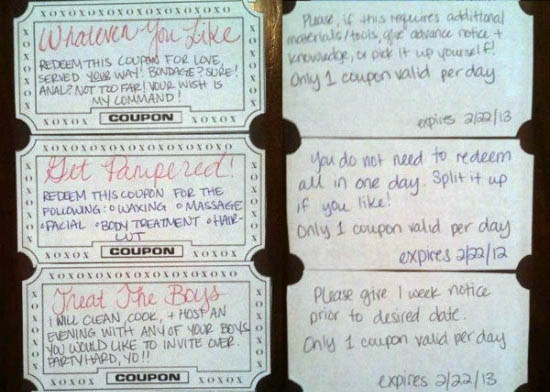 XOXOXOXOXOXOXOXOXO
Whatever You Like
REDEEM THIS COUPON FOR LOVE,
SERVED YOUR WAY! BONDAGE? SURE!
ANAL? NOT TOO FAR! YOUR WISH IS
MY COMMAND!
XOXOX COUPON XOXOX
Please, if this requires additional
materials/tools, give advance notice +
knowledge, or pick it up yourself!
Only 1 coupon valid per day
expires 2/22/13
XOXOXOXOXOXOXOXOXO
Get Pampered!
REDEEM THIS COUPON FOR THE
FOLLOWING: o WAXING o MASSAGE
o FACIAL o BODY TREATMENT o HAIR-
CUT
XOXOX COUPON XOXOX
You do not need to redeem
all in one day. Split it up
if you like!
Only 1 coupon valid per day
expires 2/22/12
XOXOXOXOXOXOXOXOXO
Treat The Boys
I WILL CLEAN, COOK, + HOST AN
EVENING WITH ANY OF YOUR BOYS
YOU WOULD LIKE TO INVITE OVER.
PARTY HARD, YO!!
XOXOX COUPON XOXOX
Please give 1 week notice
prior to desired date.
Only 1 coupon valid per day
expires 2/22/13